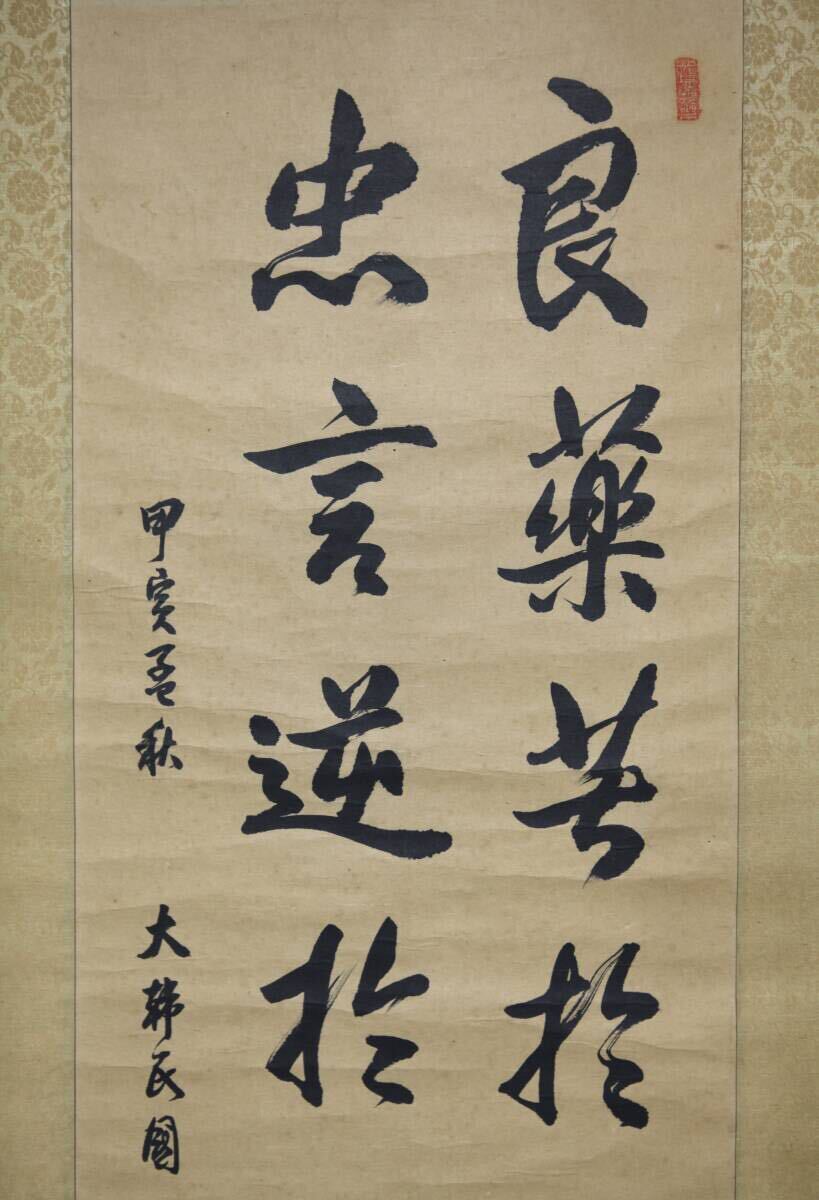 良藥苦於
忠言逆於
甲寅孟秋 大韓民國